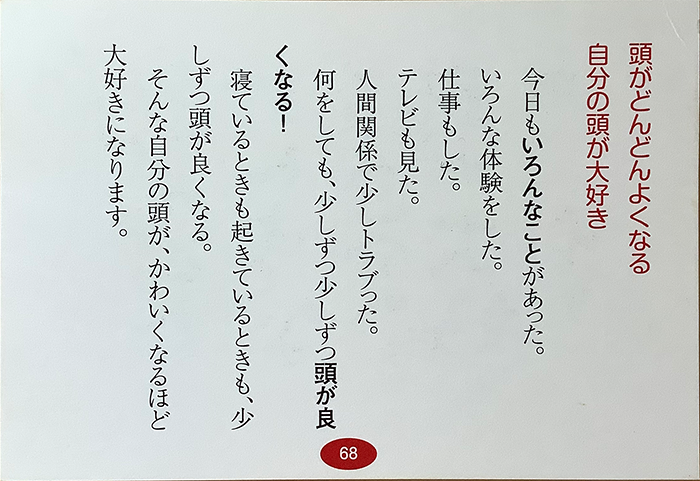 頭がどんどんよくなる
自分の頭が大好き
今日もいろんなことがあった。
いろんな体験をした。
仕事もした。
テレビも見た。
人間関係で少しトラブった。
何をしても、少しずつ少しずつ頭が良
くなる！
寝ているときも起きているときも、少
しずつ頭が良くなる。
そんな自分の頭が、かわいくなるほど
大好きになります。
68